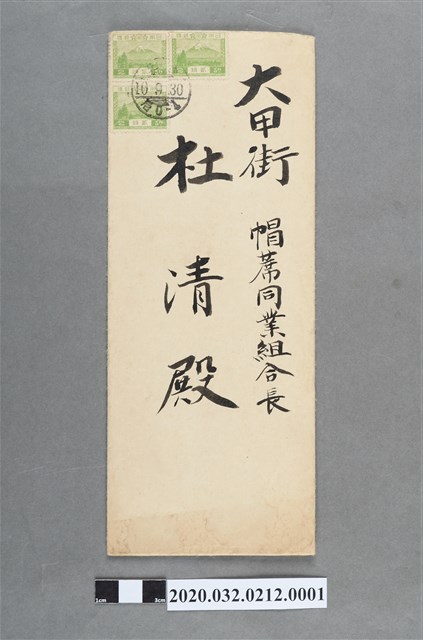 大甲街
帽蓆同業組合長
杜清殿
10.9.30
1cm
3cm
2020.032.0212.0001